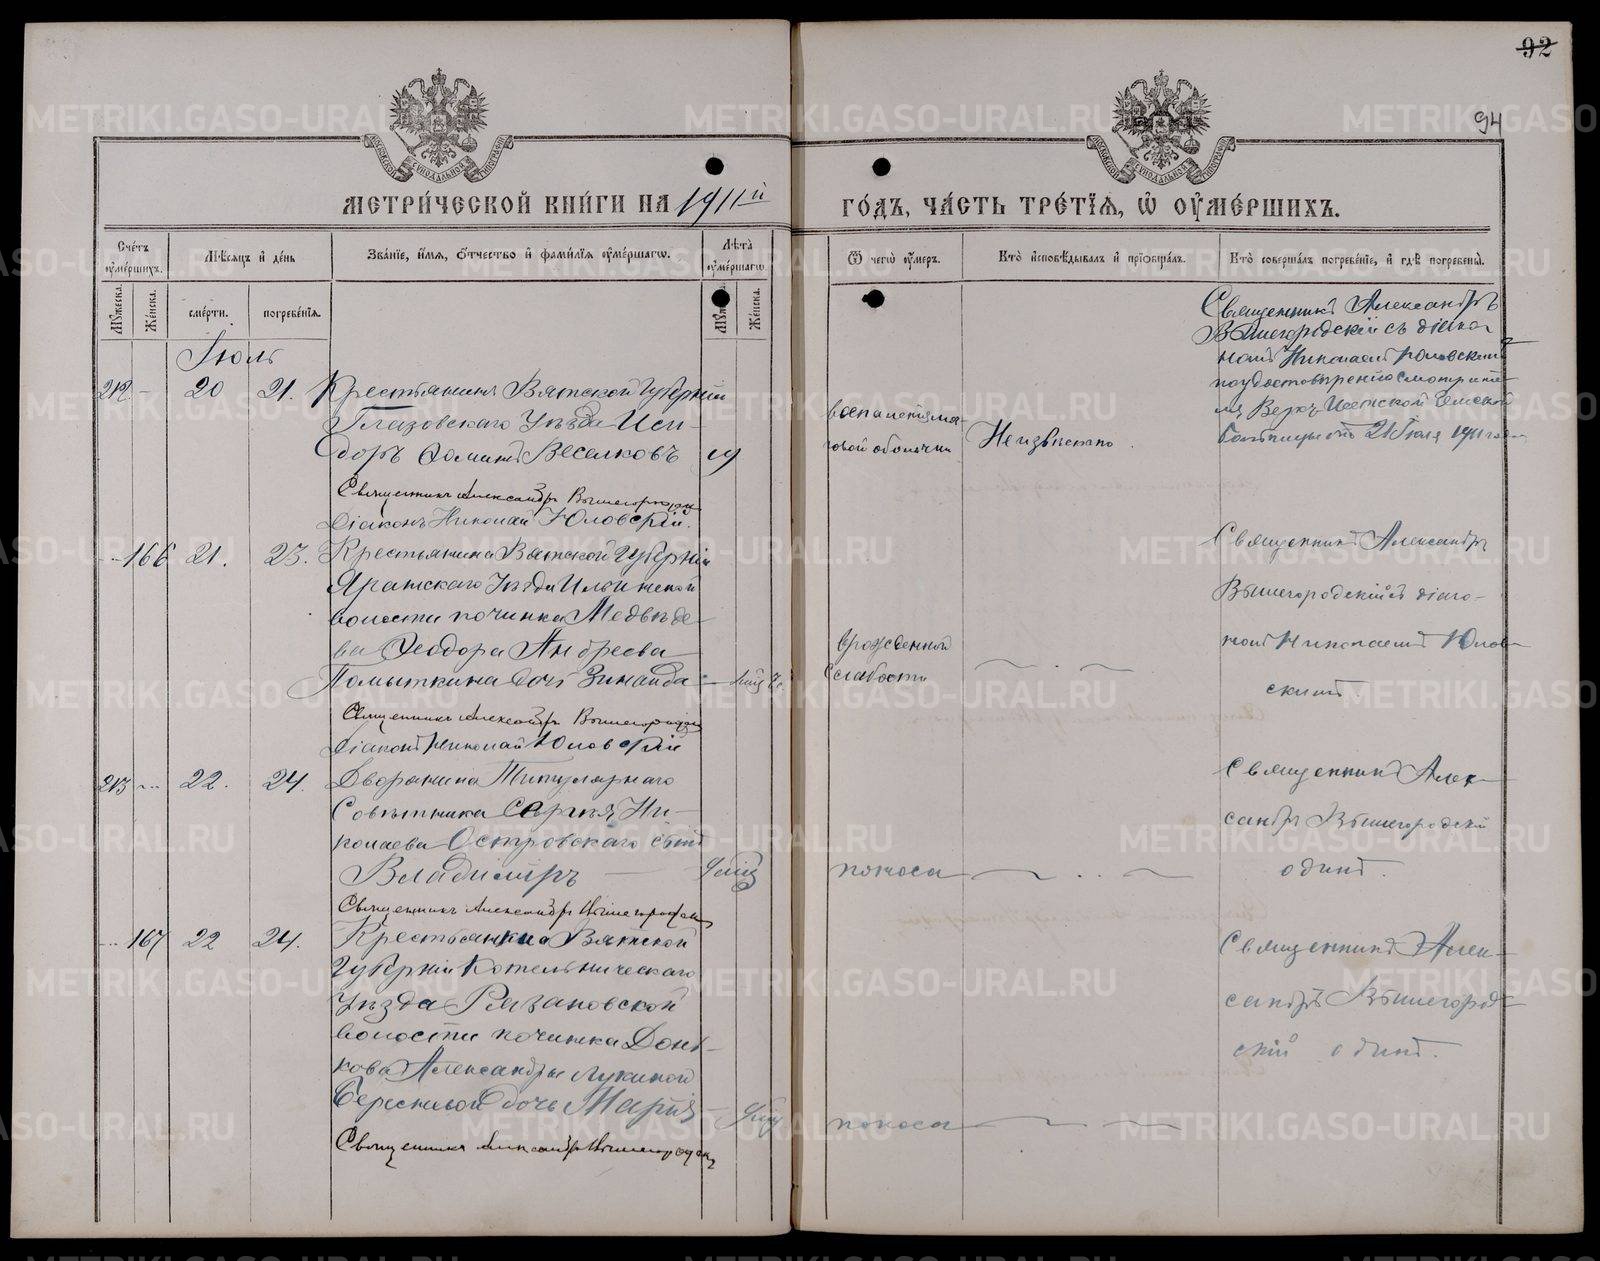 92
94
МЕТРИ́ЧЕСКОЙ КНИ́ГИ НА 1911й ГО́ДЪ, ЧА́СТЬ ТРЕ́ТЇѦ, Ѡ ОУМЕ́РШИХЪ.
Сче́тъ оуме́ршихъ.
Мѣ́сяцъ и де́нь
Зва́нїе, и́мя, о́тчество и фами́лїя оуме́ршагѡ.
Лѣ́та оуме́ршагѡ.
Ѿ чегѡ̀ оу́меръ.
Кто̀ исповѣ́дывалъ и прїобща́лъ.
Кто̀ соверша́лъ погребе́нїе, и гдѣ̀ погребены̀.
Му́жеска.
Же́нска.
сме́рти.
погребе́нїя.
Му́жеска.
Же́нска.
Іюль
212 20 21. Крестьянинъ Вятской Губерніи
Глазовскаго Уѣзда Иси-
доръ Ѳоминъ Веселковъ 19
воспаленія моз-
говой оболочки
Неизвѣстно.
Священникъ Александръ
Вышегородскій съ діако
номъ Николаемъ Юловскимъ
по удостовѣренію смотрите-
ля Верхъ Исетской Земской
больницы отъ 21 Іюля 1911 года
Священникъ Александръ Вышегородскій
Діаконъ Николай Юловскій.
166 21. 23. Крестьянина Вятской Губерніи
Яранскаго Уѣзда Ильинской
волости починка Медвѣде-
ва Ѳеодора Андреева
Помыткина дочь Зинаида
врожденной
слабости
Священникъ Александръ
Вышегородскій съ діако-
номъ Николаемъ Юлов-
скимъ.
Священникъ Александръ Вышегородскій
Діаконъ Николай Юловскій
213 22. 24. Дворянина Титулярнаго
Совѣтника Сергѣя Ни-
колаева Островскаго сынъ
Владиміръ
поноса
Священникъ Алек-
сандръ Вышегородскій
одинъ.
Священникъ Александръ Вышегородскій
167 22 24. Крестьянки Вятской
Губерніи Котельническаго
Уѣзда Рязановской
волости починка Донь-
кова Александры Лукиной
дочь Марія
поноса
Священникъ Алек-
сандръ Вышегород-
скій одинъ.
Священникъ Александръ Вышегородскій
METRIKI.GASO-URAL.RU